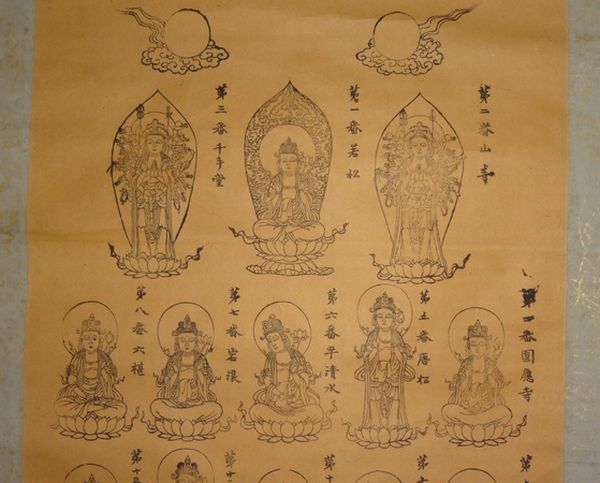 第二番山寺
第一番若松
第三番千手堂
第四番圓應寺
第五番唐松
第六番平清水
第七番岩浪
第八番六椹
第
第十
第十
第十
第十